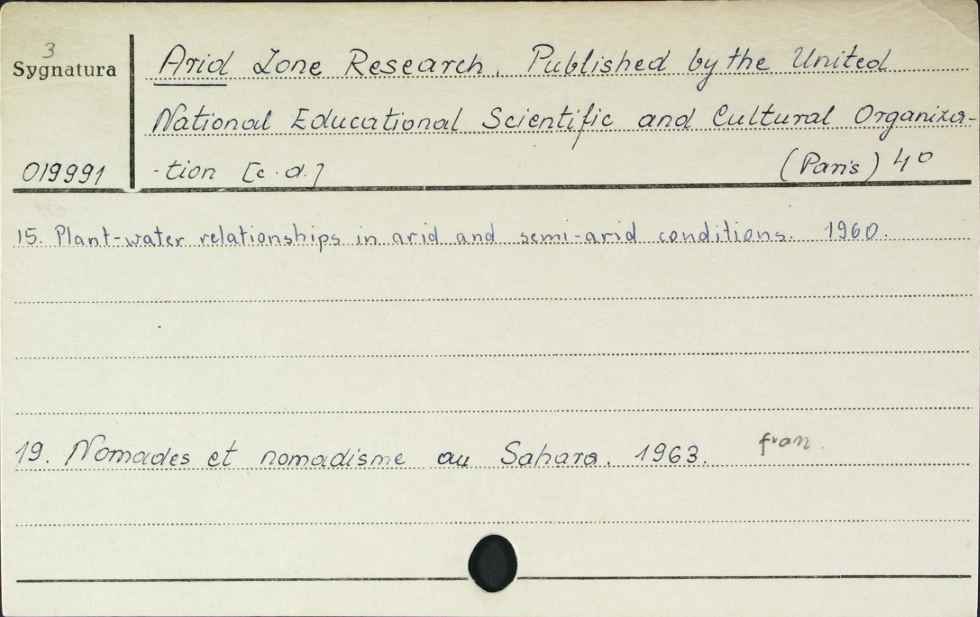 3
Sygnatura
019991
Arid Zone Research. Published by the United
National Educational Scientific and Cultural Organiza-
-tion [c.d.] (Paris) 4°
15. Plant-water relationships in arid and semi-arid conditions. 1960.
19. Nomades et nomadisme au Sahara. 1963. fran.